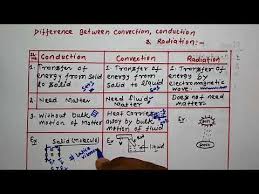 Difference Between Convection, conduction
& Radiation:-
Conduction
Convection
Radiation
1. Transfer of energy from Solid to Solid
1. Transfer of energy from Solid to Liquid
1. Transfer of energy by electromagnetic wave.
2. Need Matter
Need fluidy Matter
Does not need matter
3. Without Bulk Motion of
Heat Carries away by Bulk motion of fluid
Ex
Solid (Molecule)
Ex
Ex